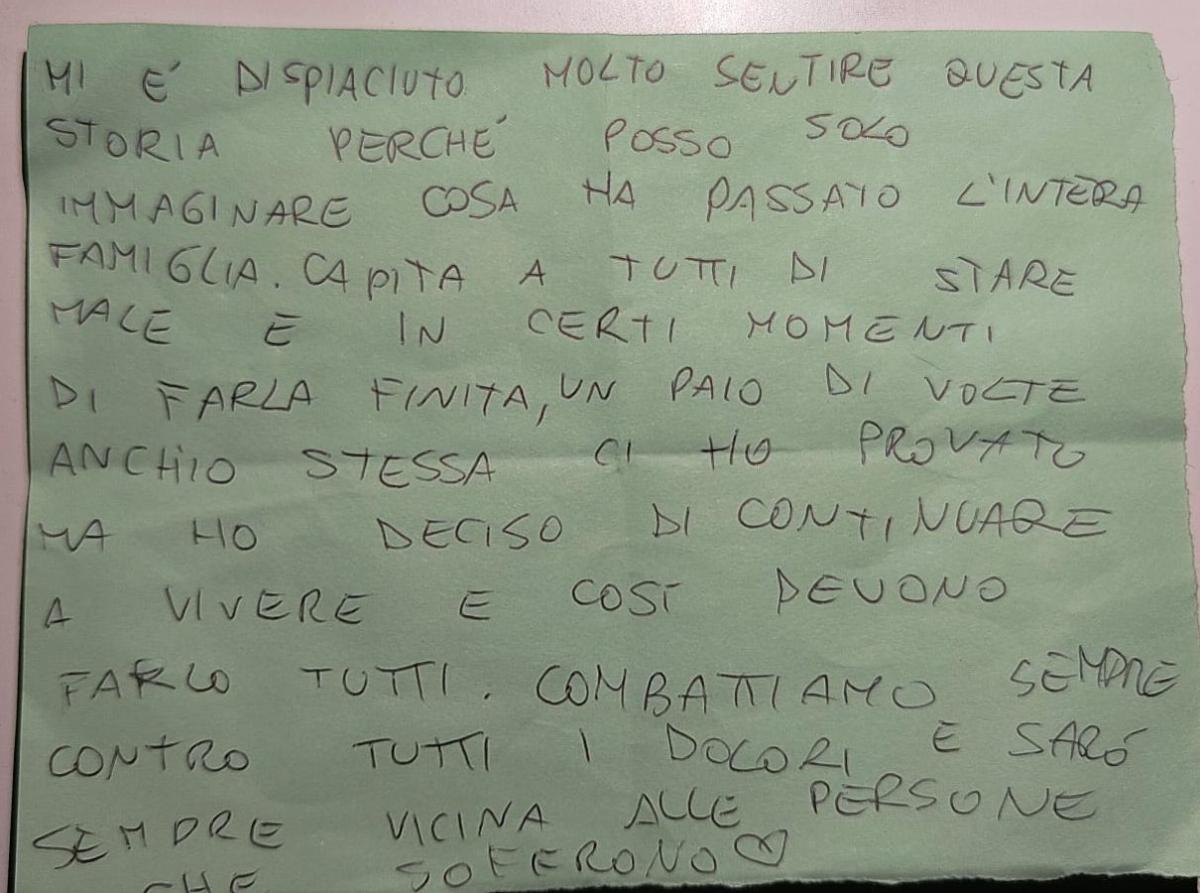 MI É DISPIACIUTO MOLTO SENTIRE QUESTA
STORIA PERCHÉ POSSO SOLO
IMMAGINARE COSA HA PASSATO L'INTERA
FAMIGLIA. CAPITA A TUTTI DI STARE
MALE E IN CERTI MOMENTI
DI FARLA FINITA, UN PAIO DI VOLTE
ANCHIO STESSA CI HO PROVATO
MA HO DECISO DI CONTINUARE
A VIVERE E COSÍ DEVONO
FARLO TUTTI. COMBATTIAMO SEMPRE
CONTRO TUTTI I DOLORI E SARÓ
SEMPRE VICINA ALLE PERSONE
CHE SOFERONO ♡